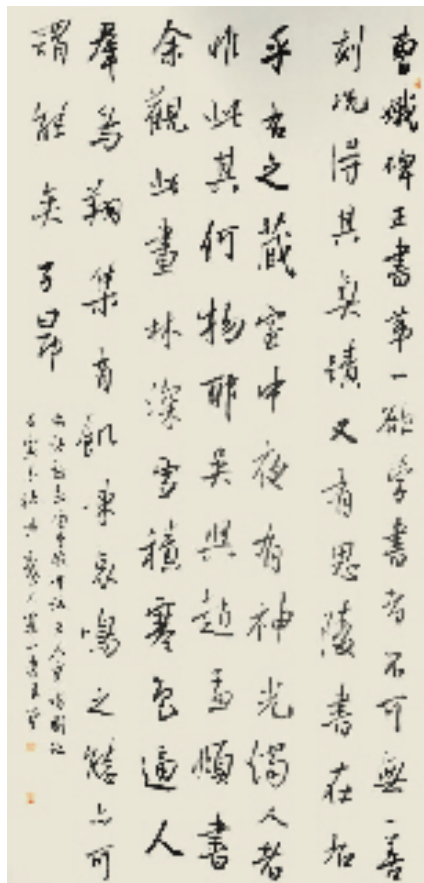 曹娥碑正書第一欲學書者不可無一善
刻況得其真蹟又有思陵書在右
乎右之藏室中夜有神光燭人者
非此其何物耶吳興趙孟頫書
余觀此畫林深雪積寒色逼人
羣烏翔集有飢凍哀鳴之態亦可
謂能矣子昂